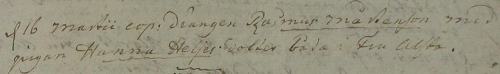 d 16 martii cop: drängen Rasmus Matienson med
pigan Hanna Heijes dotter båda i